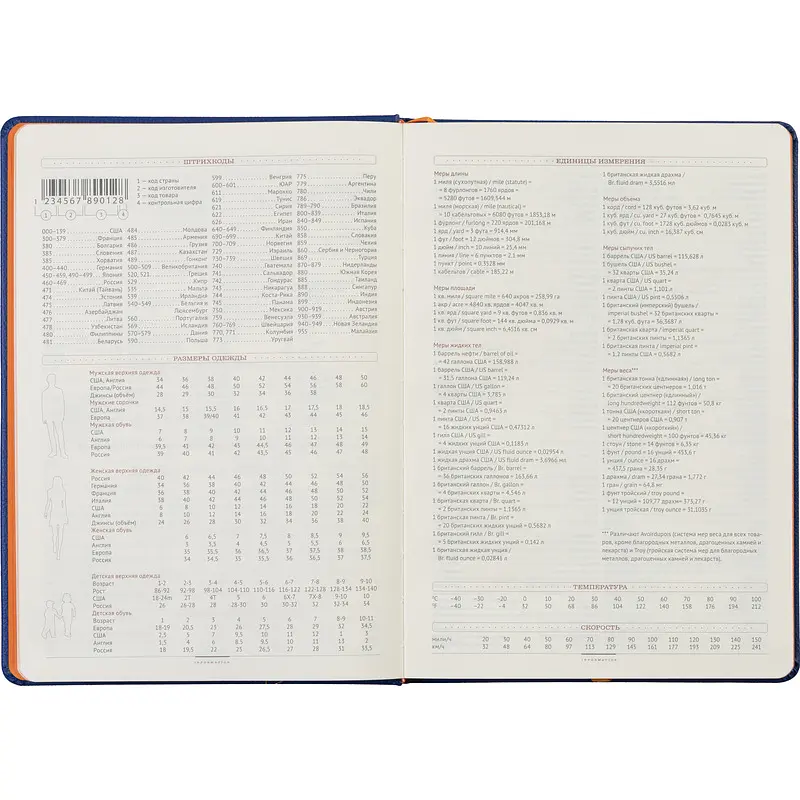 ШТРИХКОДЫ
1 — код страны
2 — код изготовителя
3 — код товара
4 — контрольная цифра
1 234567 890128
1 2 3 4
000–139 США
300–379 Франция
380 Болгария
383 Словения
385 Хорватия
400–440 Германия
450–459, 490–499 Япония
460–469 Россия
471 Китай (Тайвань)
474 Эстония
475 Латвия
476 Азербайджан
477 Литва
478 Узбекистан
480 Филиппины
481 Беларусь
484 Молдова
485 Армения
486 Грузия
487 Казахстан
489 Гонконг
500–509 Великобритания
520, 521 Греция
529 Кипр
535 Мальта
539 Ирландия
540–549 Бельгия и
Люксембург
560 Португалия
569 Исландия
570–579 Дания
590 Польша
599 Венгрия
600–601 ЮАР
611 Марокко
619 Тунис
621 Сирия
622 Египет
626 Иран
640–649 Финляндия
690–699 Китай
700–709 Норвегия
729 Израиль
730–739 Швеция
740 Гватемала
741 Сальвадор
742 Гондурас
743 Никарагуа
744 Коста-Рика
745 Панама
750 Мексика
759 Венесуэла
760–769 Швейцария
770, 771 Колумбия
773 Уругвай
775 Перу
779 Аргентина
780 Чили
786 Эквадор
789–790 Бразилия
800–839 Италия
840–849 Испания
850 Куба
858 Словакия
859 Чехия
860 Сербия и Черногория
869 Турция
870–879 Нидерланды
880 Южная Корея
885 Таиланд
888 Сингапур
890 Индия
899 Индонезия
900–919 Австрия
930–939 Австралия
940–949 Новая Зеландия
955 Малайзия
РАЗМЕРЫ ОДЕЖДЫ
Мужская верхняя одежда
США, Англия 34 36 38 40 42 44 46 48 50
Европа/Россия 44 46 48 50 52 54 56 58 60
Джинсы (объём) 28 29 30 32 34 36 38
Мужские сорочки
США, Англия 14,5 15 15,5 16 16,5 17 17,5 18 18,5
Европа 37 38 39/40 41 42 43 44 45 46
Мужская обувь
США 7 8 9 10 11 12 13 14 15
Англия 6 7 8 9 10 11 12 13 14
Европа
Россия 39 40 41 42 43,5 45 46 47 48
Женская верхняя одежда
Россия 40 42 44 46 48 50 52 54 56
Германия 34 36 38 40 42 44 46 48 50
Франция 36 38 40 42 44 46 48 50 52
Италия 38 40 42 44 46 48 50 52 54
США 6 8 10 12 14 16 18 20 22
Англия 8 10 12 14 16 18 20 22 24
Джинсы (объём) 24 26 28 30 32 34 36 38 40
Женская обувь
США 6 6,5 7 7,5 8 8,5 9 9,5
Англия
Европа
Россия
Детская верхняя одежда
Возраст 1-2 2-3 3-4 4-5 5-6 6-7 7-8 8-9 9-10
Рост 86-92 92-98 98-104 104-110 110-116 116-122 122-128 128-134 134-140
США 18-24m 2T 4T 5 6 6X-7 7X-8 9 10
Россия 26 26-28 28 28-30 30 30-32 32 32-34 34
Детская обувь
Возраст
Европа
США
Англия
Россия
ИНФОРМАЦИЯ
ЕДИНИЦЫ ИЗМЕРЕНИЯ
Меры длины
1 миля (сухопутная) / mile (statute) =
= 8 фурлонгов = 1760 ярдов =
= 5280 футов = 1609,344 м
1 миля (морская) / mile (nautical) =
= 10 кабельтовых = 6080 футов = 1853,18 м
1 фурлонг / furlong = 220 ярдов = 201,168 м
1 ярд / yard = 3 фута = 914,4 мм
1 фут / foot = 12 дюймов = 304,8 мм
1 дюйм / inch = 10 линий = 25,4 мм
1 линия / line = 6 пунктов = 2,1 мм
1 пункт / point = 0,3528 мм
1 кабельтов / cable = 185,22 м
Меры площади
1 кв. миля / square mile = 640 акров = 258,99 га
1 акр / acre = 4840 кв. ярдов = 4047 кв. м
1 кв. ярд / square yard = 9 кв. футов = 0,836 кв. м
1 кв. фут / square foot = 144 кв. дюйма = 0,0929 кв. м
1 кв. дюйм / square inch = 6,4516 кв. см
Меры жидких тел
1 баррель нефти / barrel of oil =
= 42 галлона США = 158,988 л
1 баррель США / US barrel =
= 31,5 галлона США = 119,24 л
1 галлон США / US gallon =
= 4 кварты США = 3,785 л
1 кварта США / US quart =
= 2 пинты США = 0,9463 л
1 пинта США / US pint =
= 16 жидких унций США = 0,47312 л
1 гилл США / US gill =
= 4 жидких унции США = 0,1183 л
1 жидкая унция США / US fluid ounce = 0,02954 л
1 жидкая драхма США / US fluid dram = 3,6966 мл
1 британский баррель / Br. barrel =
= 36 британских галлонов = 163,66 л
1 британский галлон / Br. gallon =
= 4 британских кварты = 4,546 л
1 британская кварта / Br. quart =
= 2 британских пинты = 1,1365 л
1 британская пинта / Br. pint =
= 20 британских жидких унций = 0,5682 л
1 британский гилл / Br. gill =
= 5 британских жидких унций = 0,142 л
1 британская жидкая унция /
Br. fluid ounce = 0,02841 л
1 британская жидкая драхма /
Br. fluid dram = 3,5516 мл
Меры объема
1 корд / cord = 128 куб. футов = 3,62 куб. м
1 куб. ярд / cu. yard = 27 куб. футов = 0,7645 куб. м
1 куб. фут / cu. foot = 1728 куб. дюймов = 0,0283 куб. м
1 куб. дюйм / cu. inch = 16,387 куб. см
Меры сыпучих тел
1 баррель США / US barrel = 115,628 л
1 бушель США / US bushel =
= 32 кварты США = 35,24 л
1 кварта США / US quart =
= 2 пинты США = 1,101 л
1 пинта США / US pint = 0,5506 л
1 британский (имперский) бушель /
imperial bushel = 32 британских кварты =
= 1,28 куб. фута = 36,3687 л
1 британская кварта / imperial quart =
= 2 британских пинты = 1,1365 л
1 британская пинта / imperial pint =
= 1,2 пинты США = 0,5682 л
Меры веса***
1 британская тонна («длинная») / long ton =
= 20 британских центнеров = 1,016 т
1 британский центнер («длинный») /
long hundredweight = 112 фунтов = 50,8 кг
1 тонна США («короткая») / short ton =
= 20 центнеров США = 0,907 т
1 центнер США («короткий») /
short hundredweight = 100 фунтов = 45,36 кг
1 стоун / stone = 14 фунтов = 6,35 кг
1 фунт / pound = 16 унций = 453,6 г
1 унция / ounce = 16 драхм =
= 437,5 грана = 28,35 г
1 драхма / dram = 27,34 грана = 1,772 г
1 гран / grain = 64,8 мг
1 фунт тройский / troy pound =
= 12 унций = 373,27 г
1 унция тройская / troy ounce = 31,1035 г
*** Различают Avoirdupois (система мер веса для всех товаров,
кроме благородных металлов, драгоценных камней и
лекарств) и Troy (тройская система мер для благородных
металлов, драгоценных камней и лекарств).
ТЕМПЕРАТУРА
°C −40 −30 −20 0 10 20 30 40 50 60 70 80 90 100
°F −40 −22 −4 32 50 68 86 104 122 140 158 176 194 212
СКОРОСТЬ
мили/ч 20 30 40 50 60 70 80 90 100 110 120 130 140 150
км/ч 32 48 64 80 97 113 129 145 161 177 193 209 225 241
ИНФОРМАЦИЯ